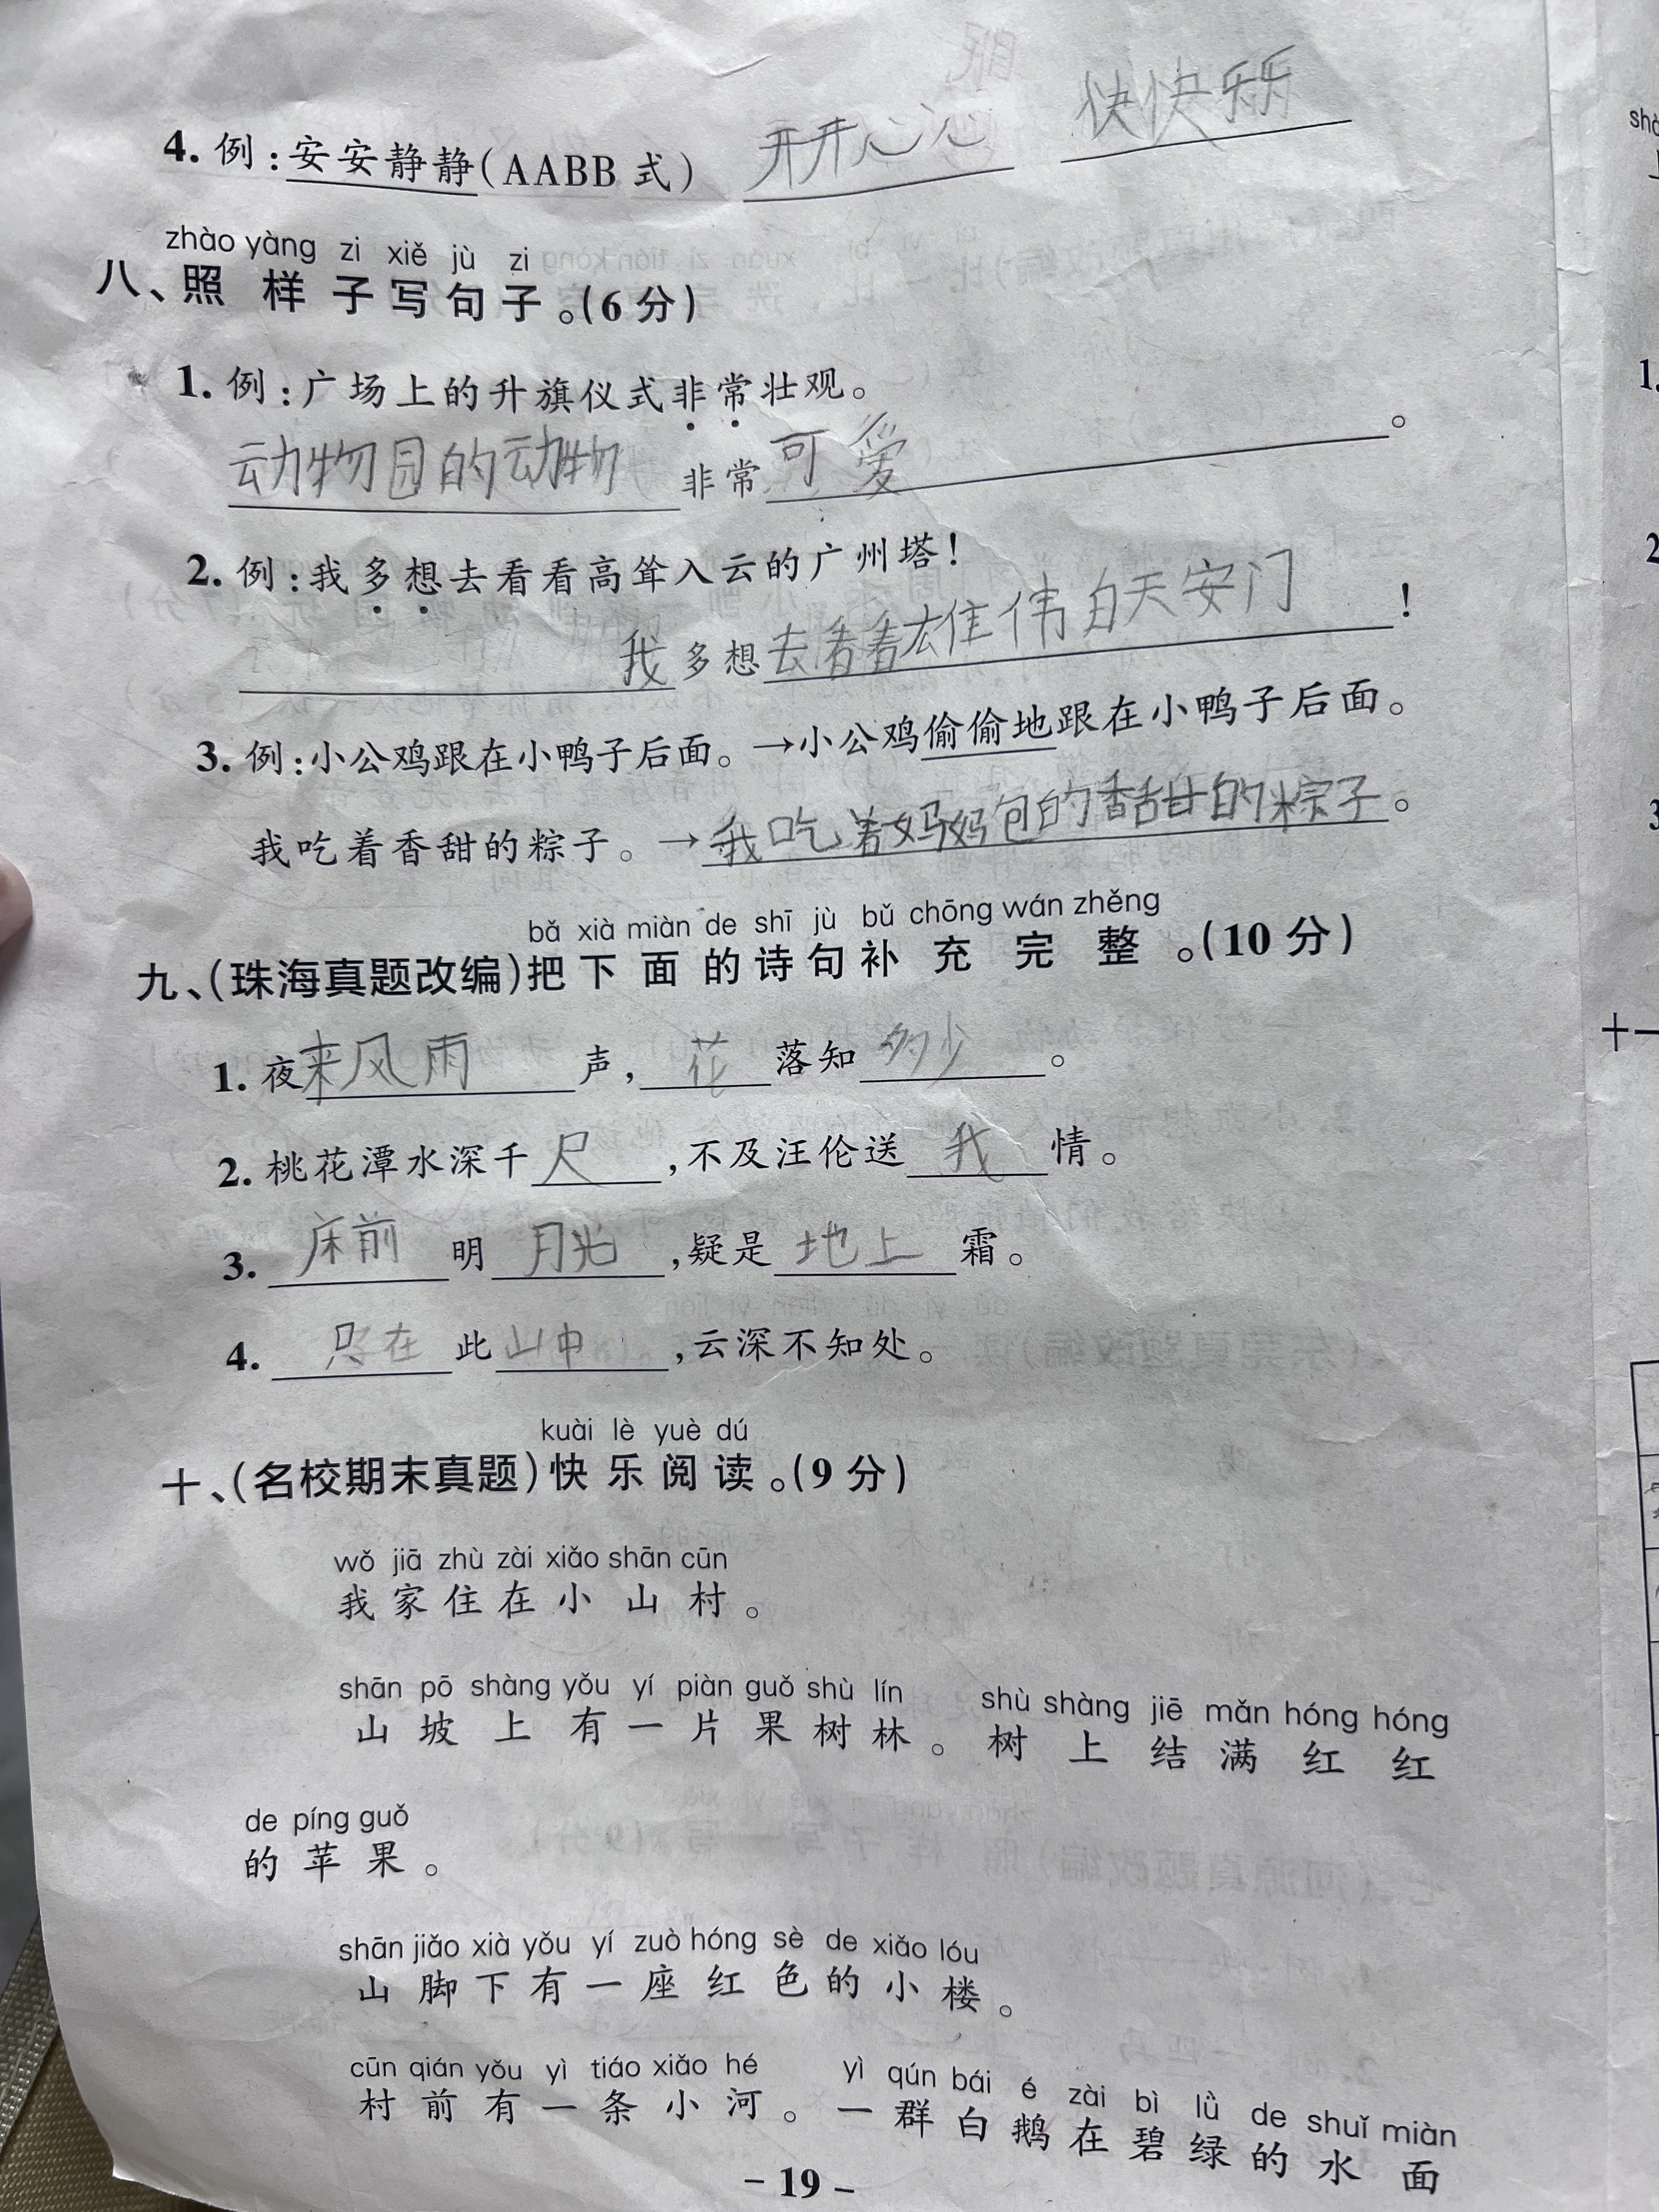 4. 例:安安静静(AABB 式) 开开心心 快快乐乐
zhào yàng zi xiě jù zi
八、照样子写句子。(6分)
1. 例:广场上的升旗仪式非常壮观。
动物园的动物非常可爱。
2. 例:我多想去看看高耸入云的广州塔!
我多想去看看雄伟的天安门!
3. 例:小公鸡跟在小鸭子后面。→小公鸡偷偷地跟在小鸭子后面。
我吃着香甜的粽子。→我吃着妈妈包的香甜的粽子。
bǎ xià miàn de shī jù bǔ chōng wán zhěng
九、(珠海真题改编)把下面的诗句补充完整。(10分)
1. 夜来风雨声,花落知多少。
2. 桃花潭水深千尺,不及汪伦送我情。
3. 床前明月光,疑是地上霜。
4. 只在此山中,云深不知处。
kuài lè yuè dú
十、(名校期末真题)快乐阅读。(9分)
wǒ jiā zhù zài xiǎo shān cūn
我家住在小山村。
shān pō shàng yǒu yí piàn guǒ shù lín shù shàng jiē mǎn hóng hóng
山坡上有一片果树林。树上结满红红
de píng guǒ
的苹果。
shān jiǎo xià yǒu yí zuò hóng sè de xiǎo lóu
山脚下有一座红色的小楼。
cūn qián yǒu yì tiáo xiǎo hé yì qún bái é zài bì lǜ de shuǐ miàn
村前有一条小河。一群白鹅在碧绿的水面
- 19 -
1.
2
3
十一